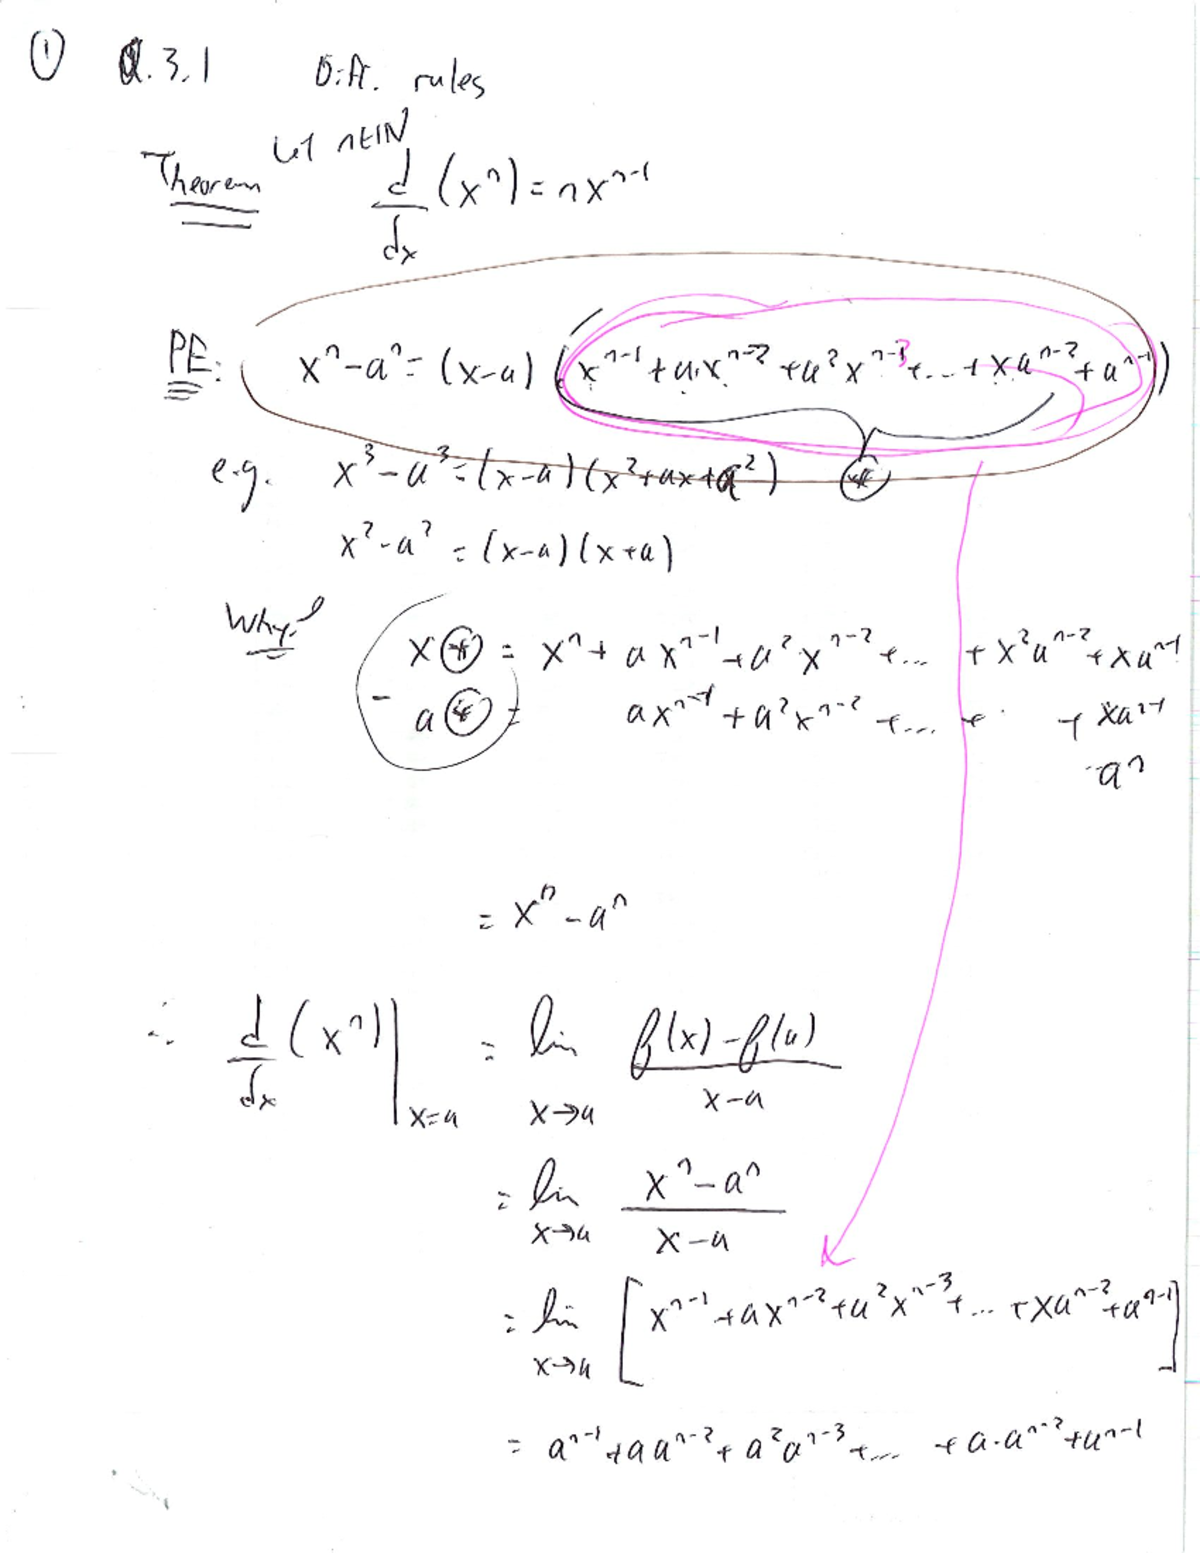 ① Q.3.1 Diff. rules
Theorem Let n∈ℕ
d/dx (xⁿ) = nxⁿ⁻¹
PF: xⁿ-aⁿ = (x-a)(xⁿ⁻¹+a·xⁿ⁻²+a²xⁿ⁻³+...+xaⁿ⁻²+aⁿ⁻¹)
e.g. x³-a³=(x-a)(x²+ax+a²) ⊛
x²-a² = (x-a)(x+a)
Why?
x⊛ = xⁿ + axⁿ⁻¹+a²xⁿ⁻²+... + x²aⁿ⁻²+xaⁿ⁻¹
- a⊛ = axⁿ⁻¹+a²xⁿ⁻²+... + · + xaⁿ⁻¹
aⁿ
= xⁿ-aⁿ
∴ d/dx (xⁿ)|x=a = lim x→a f(x)-f(a)/x-a
= lim x→a xⁿ-aⁿ/x-a
= lim x→a [xⁿ⁻¹+axⁿ⁻²+a²xⁿ⁻³+...+xaⁿ⁻²+aⁿ⁻¹]
= aⁿ⁻¹+aaⁿ⁻²+a²aⁿ⁻³+... +a·aⁿ⁻²+aⁿ⁻¹